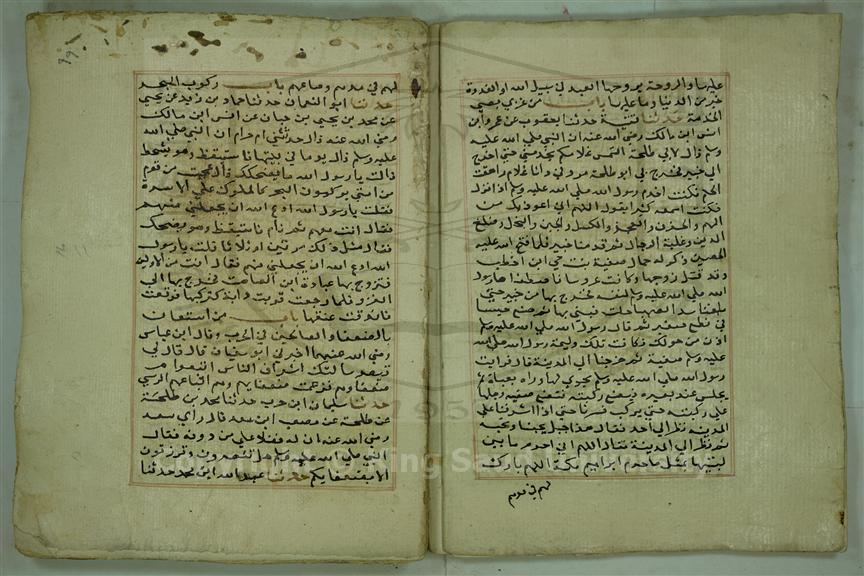 عليها والروحة يروحها العبد في سبيل الله او الغدوة
خير من الدنيا وما عليها باب من غزي بصبي
الخدمة حدثنا قتيبة حدثنا يعقوب عن عمرو عن
انس ابن مالك رضي الله عنه ان النبي صلي الله عليه
وسلم قال لابي طلحة التمس غلامكم يخدمني حتي اخرج
الي خيبر فخرج بي ابو طلحة مردفي وانا غلام راهقت
الحلم فكنت اخدم رسول الله صلي الله عليه وسلم اذا نزل
فكنت اسمعه كثيرا يقول اللهم اني اعوذ بك من
الهم والحزن والعجز والكسل والجبن والبخل وضلع
الدين وغلبة الرجال ثم قدمنا خيبر فلما فتح الله عليه
الحصن ذكر له جمال صفية بنت حيي ابن اخطب
وقد قتل زوجها وكانت عروسا فاصطفاها رسول
الله صلي الله عليه وسلم لنفسه فخرج بها من خيبر حتي
بلغنا سد الصهبا حلت فبني بها ثم صنع حيسا
في نطع صغير ثم قال رسول الله صلي الله عليه وسلم
اذن من حولك فكانت تلك وليمة رسول الله صلي الله
عليه وسلم صفية ثم خرجنا الي المدينة قال فرايت
رسول الله صلي الله عليه وسلم يحوي لها وراه بعباة ثم
يجلس عند بعيره فيضع ركبته فتضع صفية رجلها
علي ركبته حتي تركب فسرنا حتي اذا اشرفنا علي
المدينة نظر الي احد فقال هذا جبل يحبنا ونحبه
ثم نظر الي المدينة فقال اللهم اني احرم ما بين
لابتيها بمثل ما حرم ابراهيم مكة اللهم بارك
لهم في مدهم
99
لهم في مدهم وصاعهم باب ركوب البحر
حدثنا ابو النعمان حدثنا حماد بن زيد عن يحيي
عن محمد بن يحيي بن حبان عن انس ابن مالك
رضي الله عنه قال حدثتني ام حرام ان النبي صلي الله
عليه وسلم قال يوما في بيتها فاستيقظ وهو يضحك
قالت يا رسول الله ما يضحكك قال عجبت من قوم
من امتي يركبون البحر كالملوك علي الاسرة
فقلت يا رسول الله ادع الله ان يجعلني منهم
فقال انت معهم ثم نام فاستيقظ وهو يضحك
فقال مثل ذلك مرتين او ثلاثا قلت يا رسول
الله ادع الله ان يجعلني منهم فقال انت من الاولين
فتزوج بها عبادة ابن الصامت فخرج بها الي
الغزو فلما رجعت قربت دابة لتركبها فوقعت
فاندقت عنقها باب من استعان
بالضعفا والصالحين في الحرب وقال ابن عباس
رضي الله عنهما اخبرني ابو سفيان قال قال لي
قيصر سالتك اشراف الناس اتبعوه ام
ضعفاوهم فزعمت ضعفاهم وهم اتباع الرسل
حدثنا سليمان ابن حرب حدثنا محمد بن طلحة
عن طلحة عن مصعب ابن سعد قال راي سعد
رضي الله عنه ان له فضلا علي من دونه فقال
النبي صلي الله عليه وسلم هل تنصرون وترزقون
الا بضعفايكم حدثنا عبد الله ابن محمد حدثنا